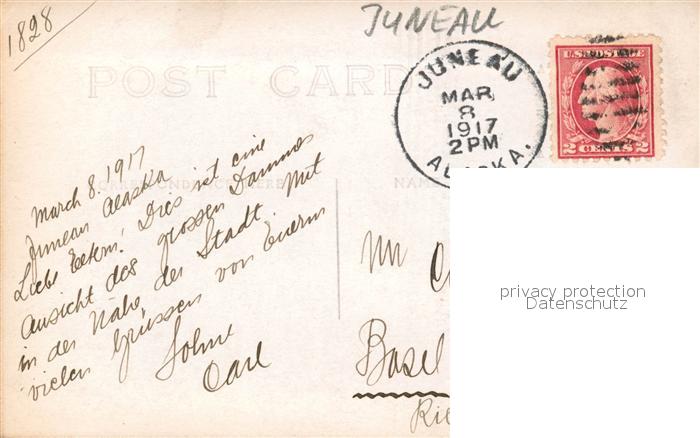 1828
JUNEAU
POST CARD
JUNEAU
MAR
8
1917
2 PM
ALASKA.
U.S. POSTAGE
2 CENTS 2
CORRESPONDENCE HERE
NAME
March 8. 1917
Juneau Alaska
Liebe Eltern! Dies ist eine
Ansicht des grossen Dammes
in der Nähe der Stadt. Mit
vielen Grüssen von Euerm
Sohne
Carl
Mr
Basel
privacy protection
Datenschutz